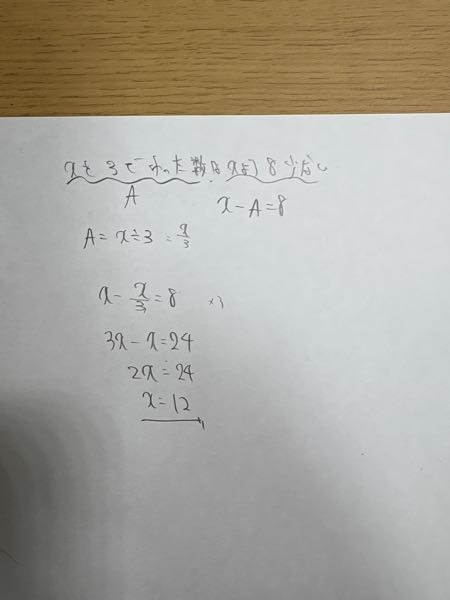 xを3でわった数はxより8少ない
A
x-A=8
A=x÷3=x/3
x-x/3=8 ×3
3x-x=24
2x=24
x=12